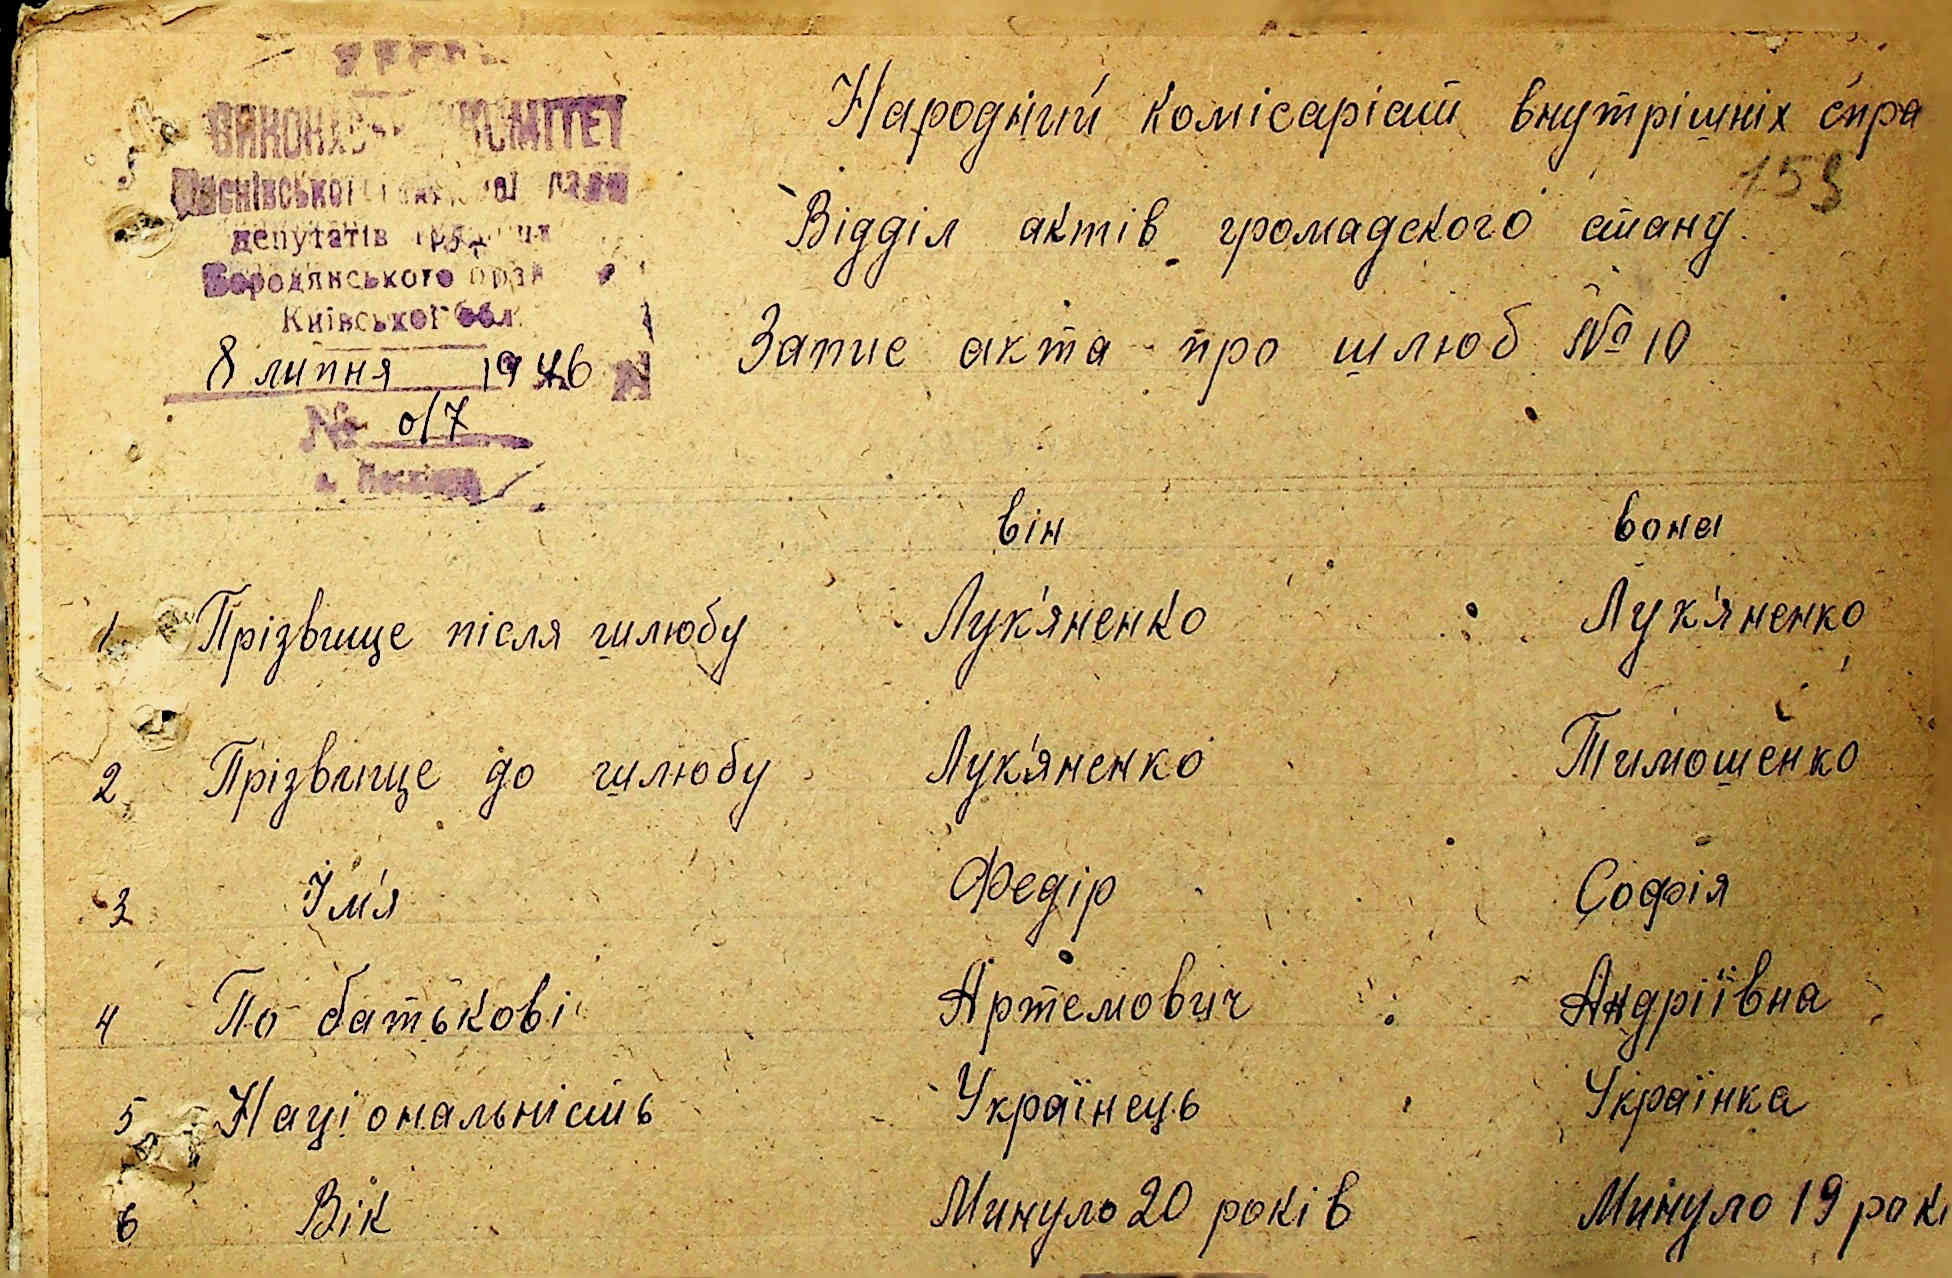 УРСР
ВИКОНАВЧИЙ КОМІТЕТ
ради
депутатів трудящих
Бородянського р-ну
Київської обл.
8 липня 1946
№ 0/7
Народний комісаріат внутрішніх спра
153
Відділ актів громадского стану
Запис акта про шлюб №10
він вона
1 Прізвище після шлюбу Лук'яненко Лук'яненко
2 Прізвище до шлюбу Лук'яненко Тимошенко
3 Ім'я Федір Софія
4 По батькові Артемович Андріївна
5 Національність Українець Українка
6 Вік Минуло 20 років Минуло 19 рокі